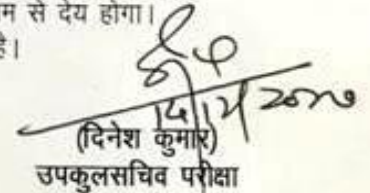 म से देय होगा।
है।
(दिनेश कुमार)
उपकुलसचिव परीक्षा